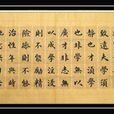 致遠夫學須
靜也才須學
也非學無以
廣才非志無
以成學淫慢
則不能勵精
險躁則不能
治性年與時